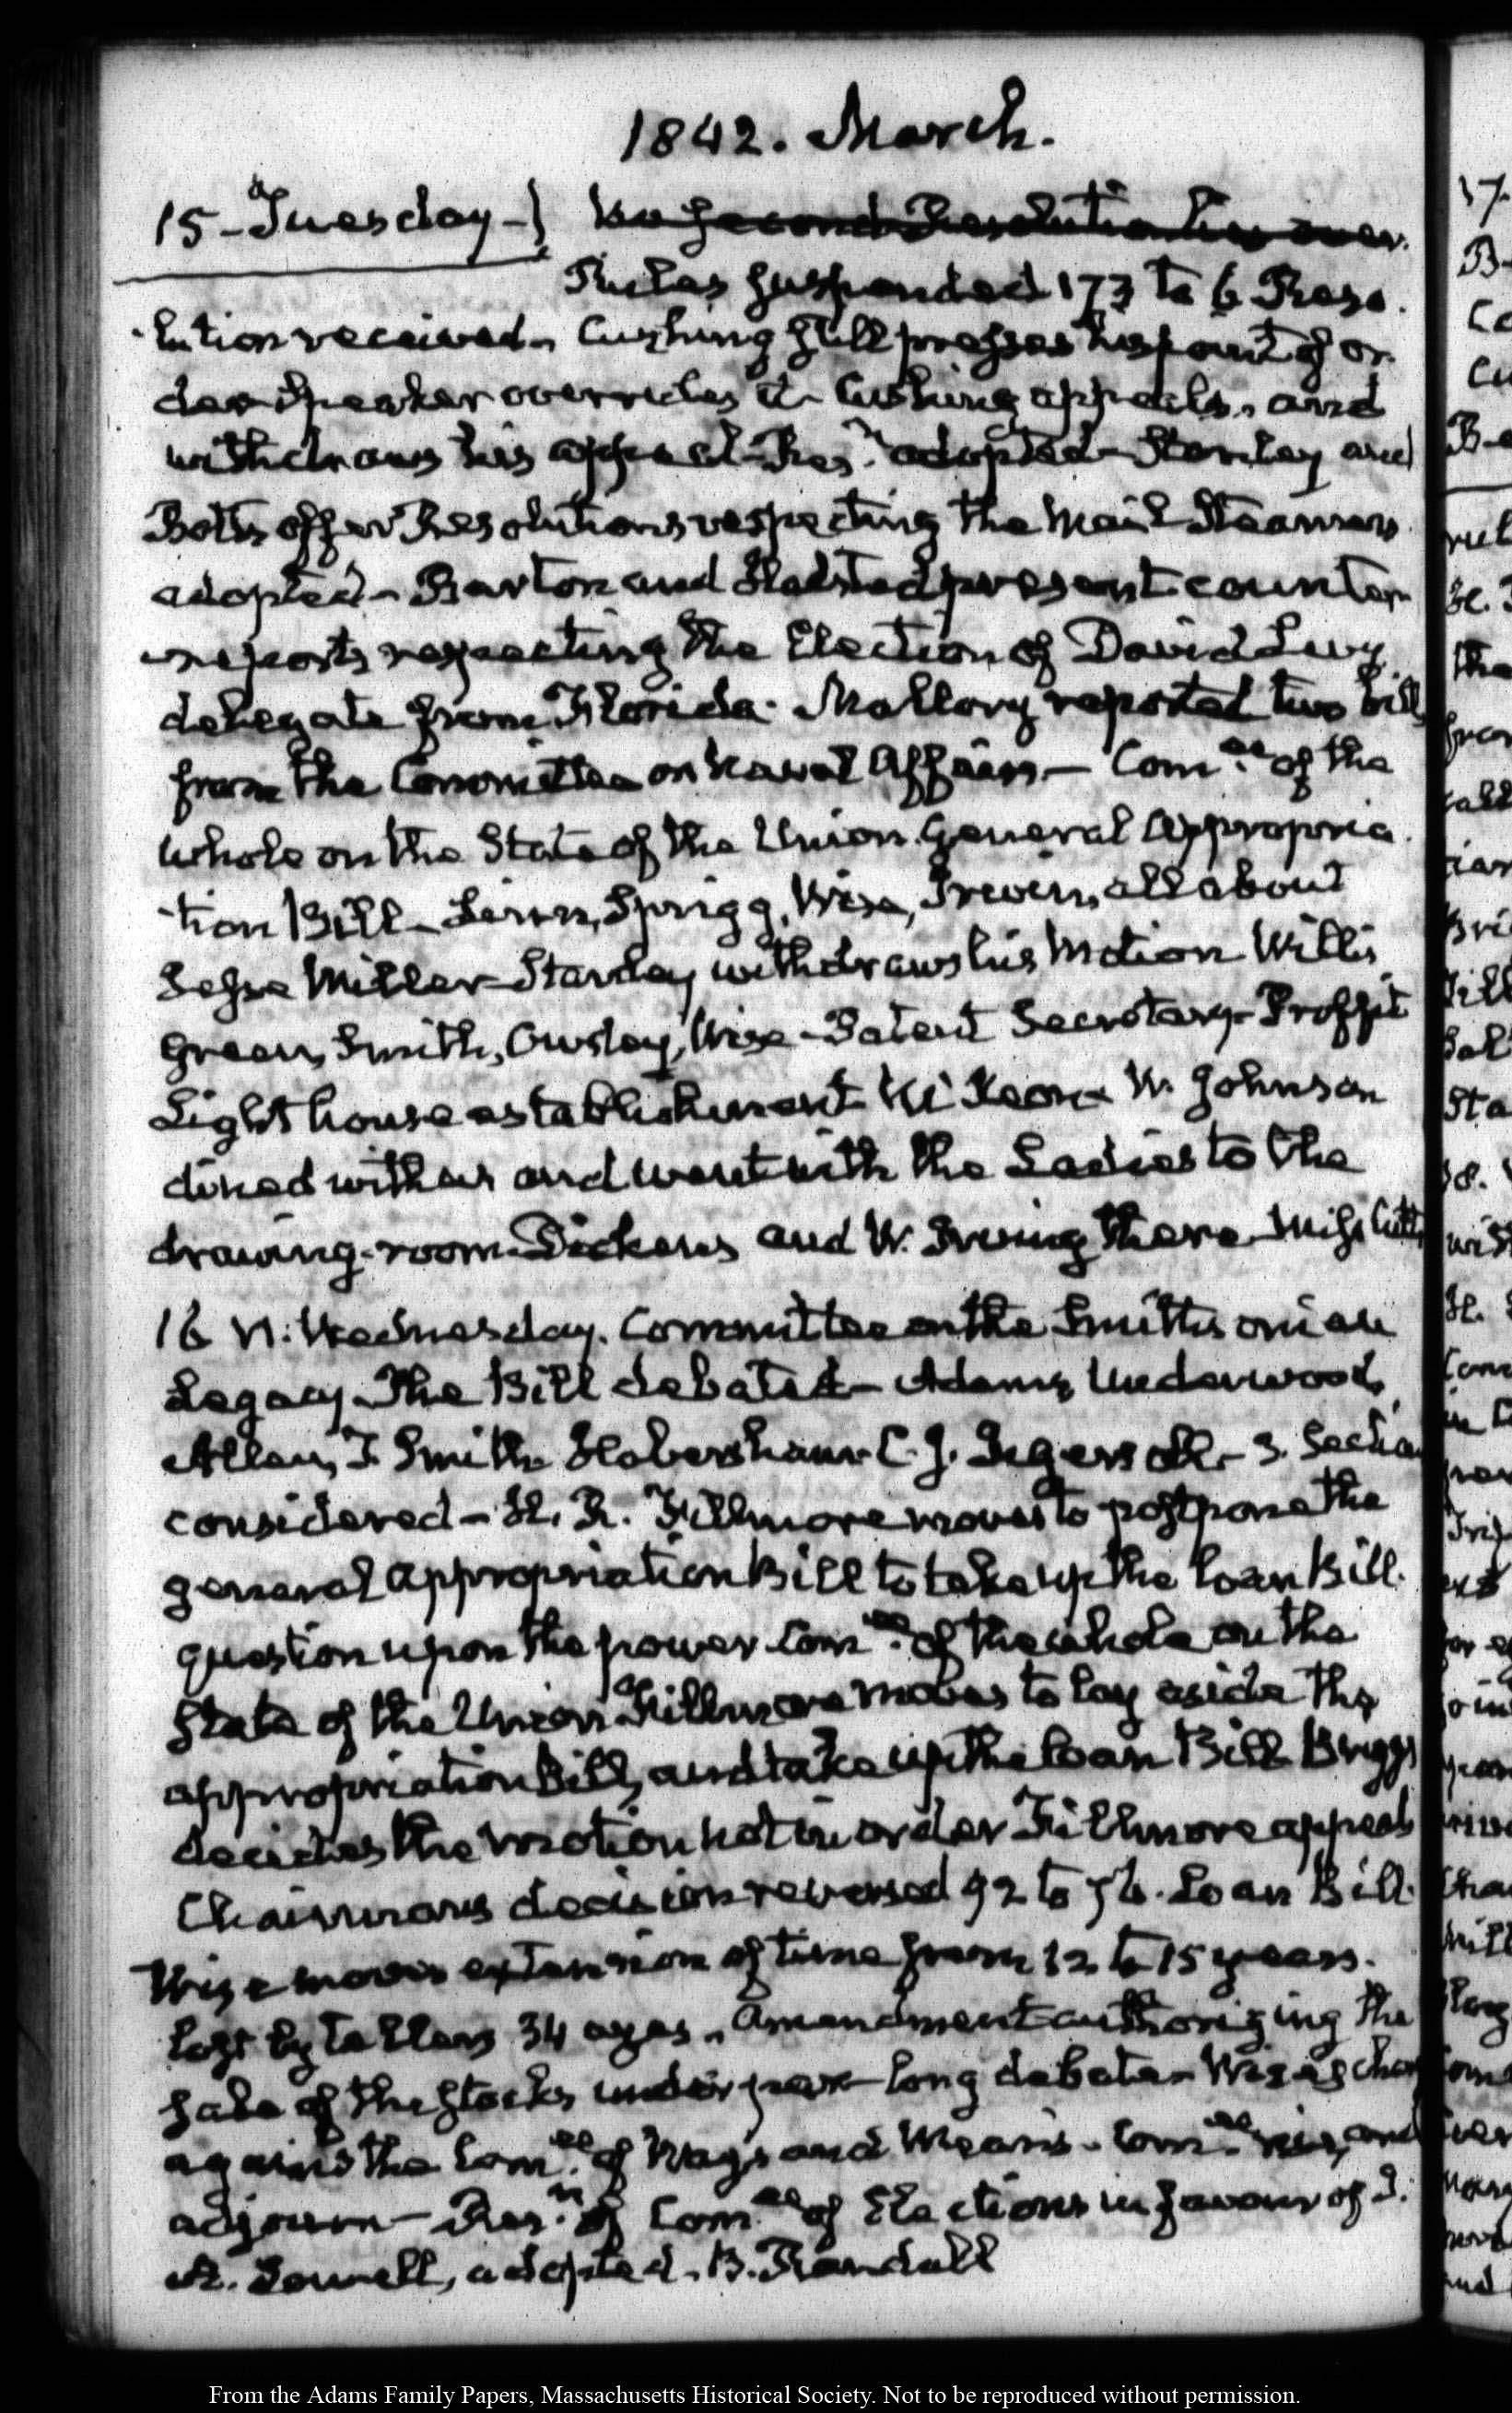 1842. March.
15-Tuesday-} Second Resolution lies over.
Rules suspended 173 to 6 Reso.
-lution received. Cushing still presses his point of or-
der Speaker overrules it. Cushing appeals, and
withdraws his appeal-Res.n adopted-Stanley and
Botts offer Resolutions respecting the Mail Steamers
adopted- Barton and Halsted present counter
reports respecting the Election of David Levy
delegate from Florida. Mallory reported two bills
from the Committee on Naval Affairs- Com.ee of the
whole on the State of the Union. General Appropria
-tion Bill- Linn, Sprigg, Wise, Irwin, all about
Jesse Miller-Stanley withdraws his Motion Willis
Green, Smith, Owsley, Wise-Patent Secretary-Proffit
Light house establishment McKeon- W. Johnson
dined with us and went with the Ladies to the
drawing-room-Dickens and W. Irving there Miss Cutts
16 Wednesday. Committee on the Smithsonian
Legacy-The Bill debated- Adams, Underwood,
Allen, T. Smith Habersham C. J. Ingersoll- 3. Section
considered- H. R. Fillmore moves to postpone the
general appropriation Bill to take up the Loan Bill.
question upon the power Com.ee of the whole on the
State of the Union Fillmore moves to lay aside the
appropriation Bill, and take up the loan Bill Briggs
decides the motion not in order Fillmore appeals
Chairman's decision reversed 92 to 76. Loan Bill.
Wise moves extension of time from 12 to 15 years.
lost by tellers 34 ayes. Amendment authorizing the
sale of the Stocks under par- long debate- Wise's char
against the Com.ee of Ways and Means- Com.ee rise, and
adjourn- Res.n of Com.ee of Elections in favour of
Lowell, adopted. B. Randall
From the Adams Family Papers, Massachusetts Historical Society. Not to be reproduced without permission.